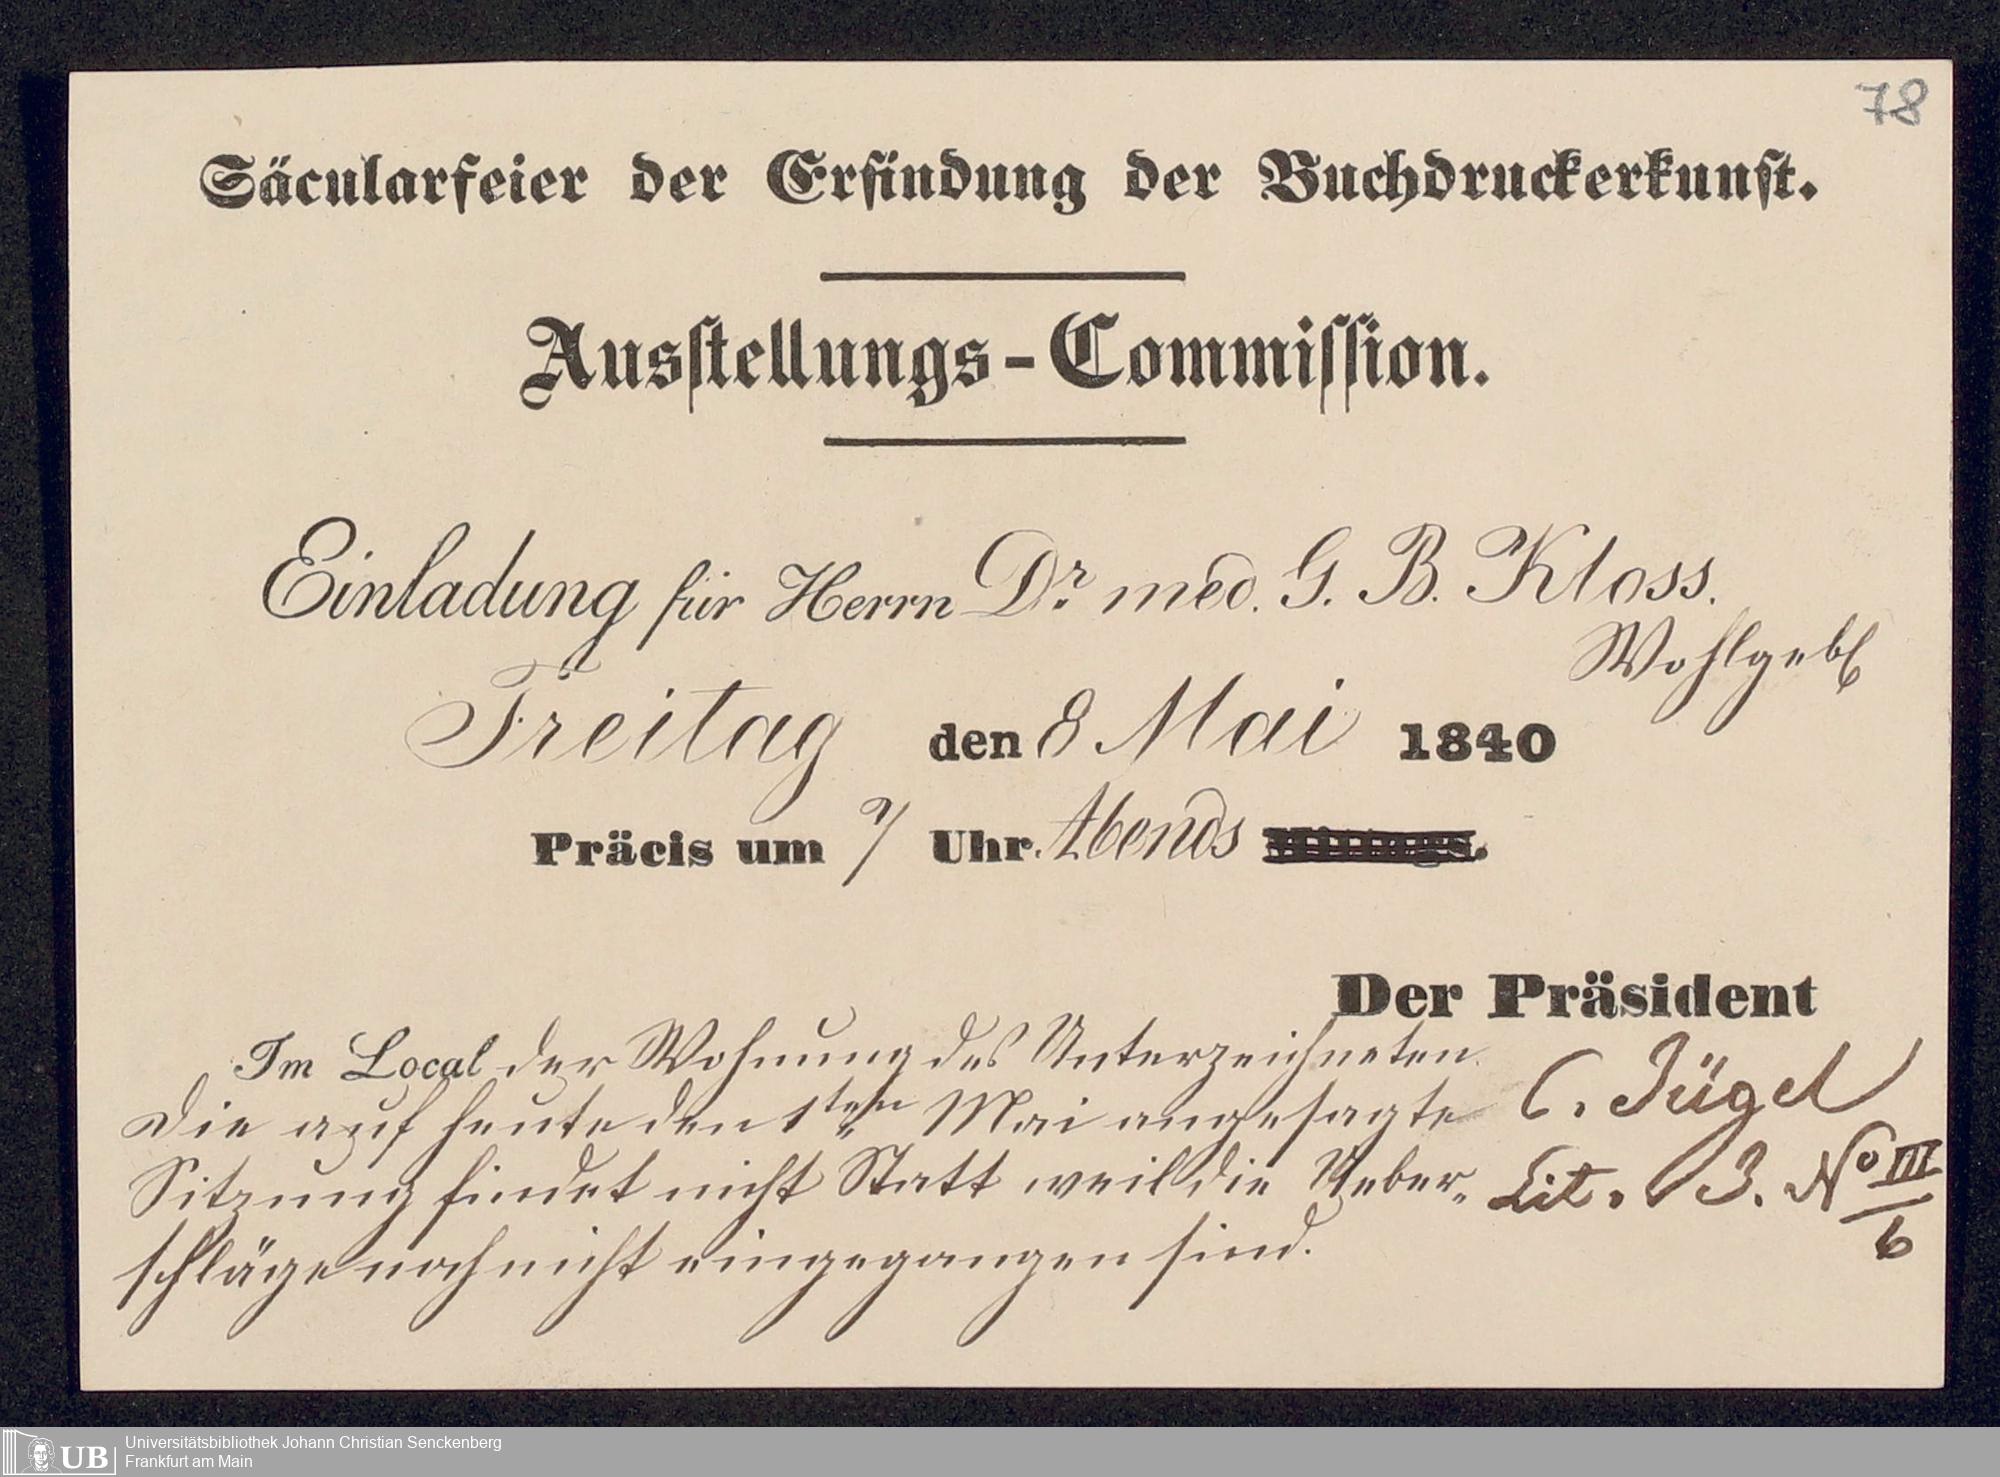 78
Säcularfeier der Erfindung der Buchdruckerkunst.
Ausstellungs-Commission.
Einladung für Herrn Dr. med. G. B. Kloss.
Wohlgeb
Freitag den 8 Mai 1840
Präcis um 7 Uhr. Abends Mittags.
Der Präsident
Im Local der Wohnung des Unterzeichneten.
C. Jügel
Die auf heute den 1ten Mai angesagte
Sitzung findet nicht Statt weil die Ueber-
schläge noch nicht eingegangen sind.
Lit. B. No III
6
UB
Universitätsbibliothek Johann Christian Senckenberg
Frankfurt am Main